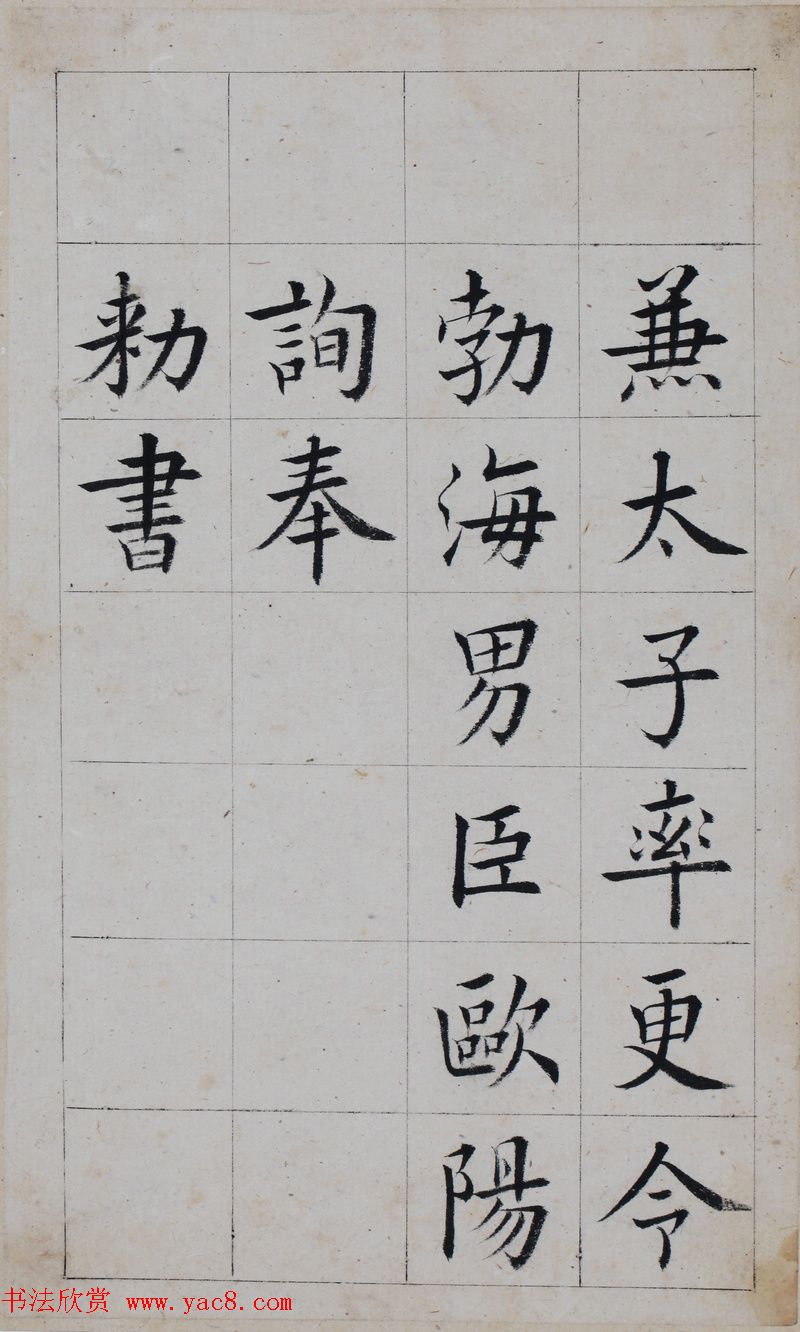 兼太子率更令
勃海男臣歐陽
詢奉
勑書
书法欣赏 www.yac8.com